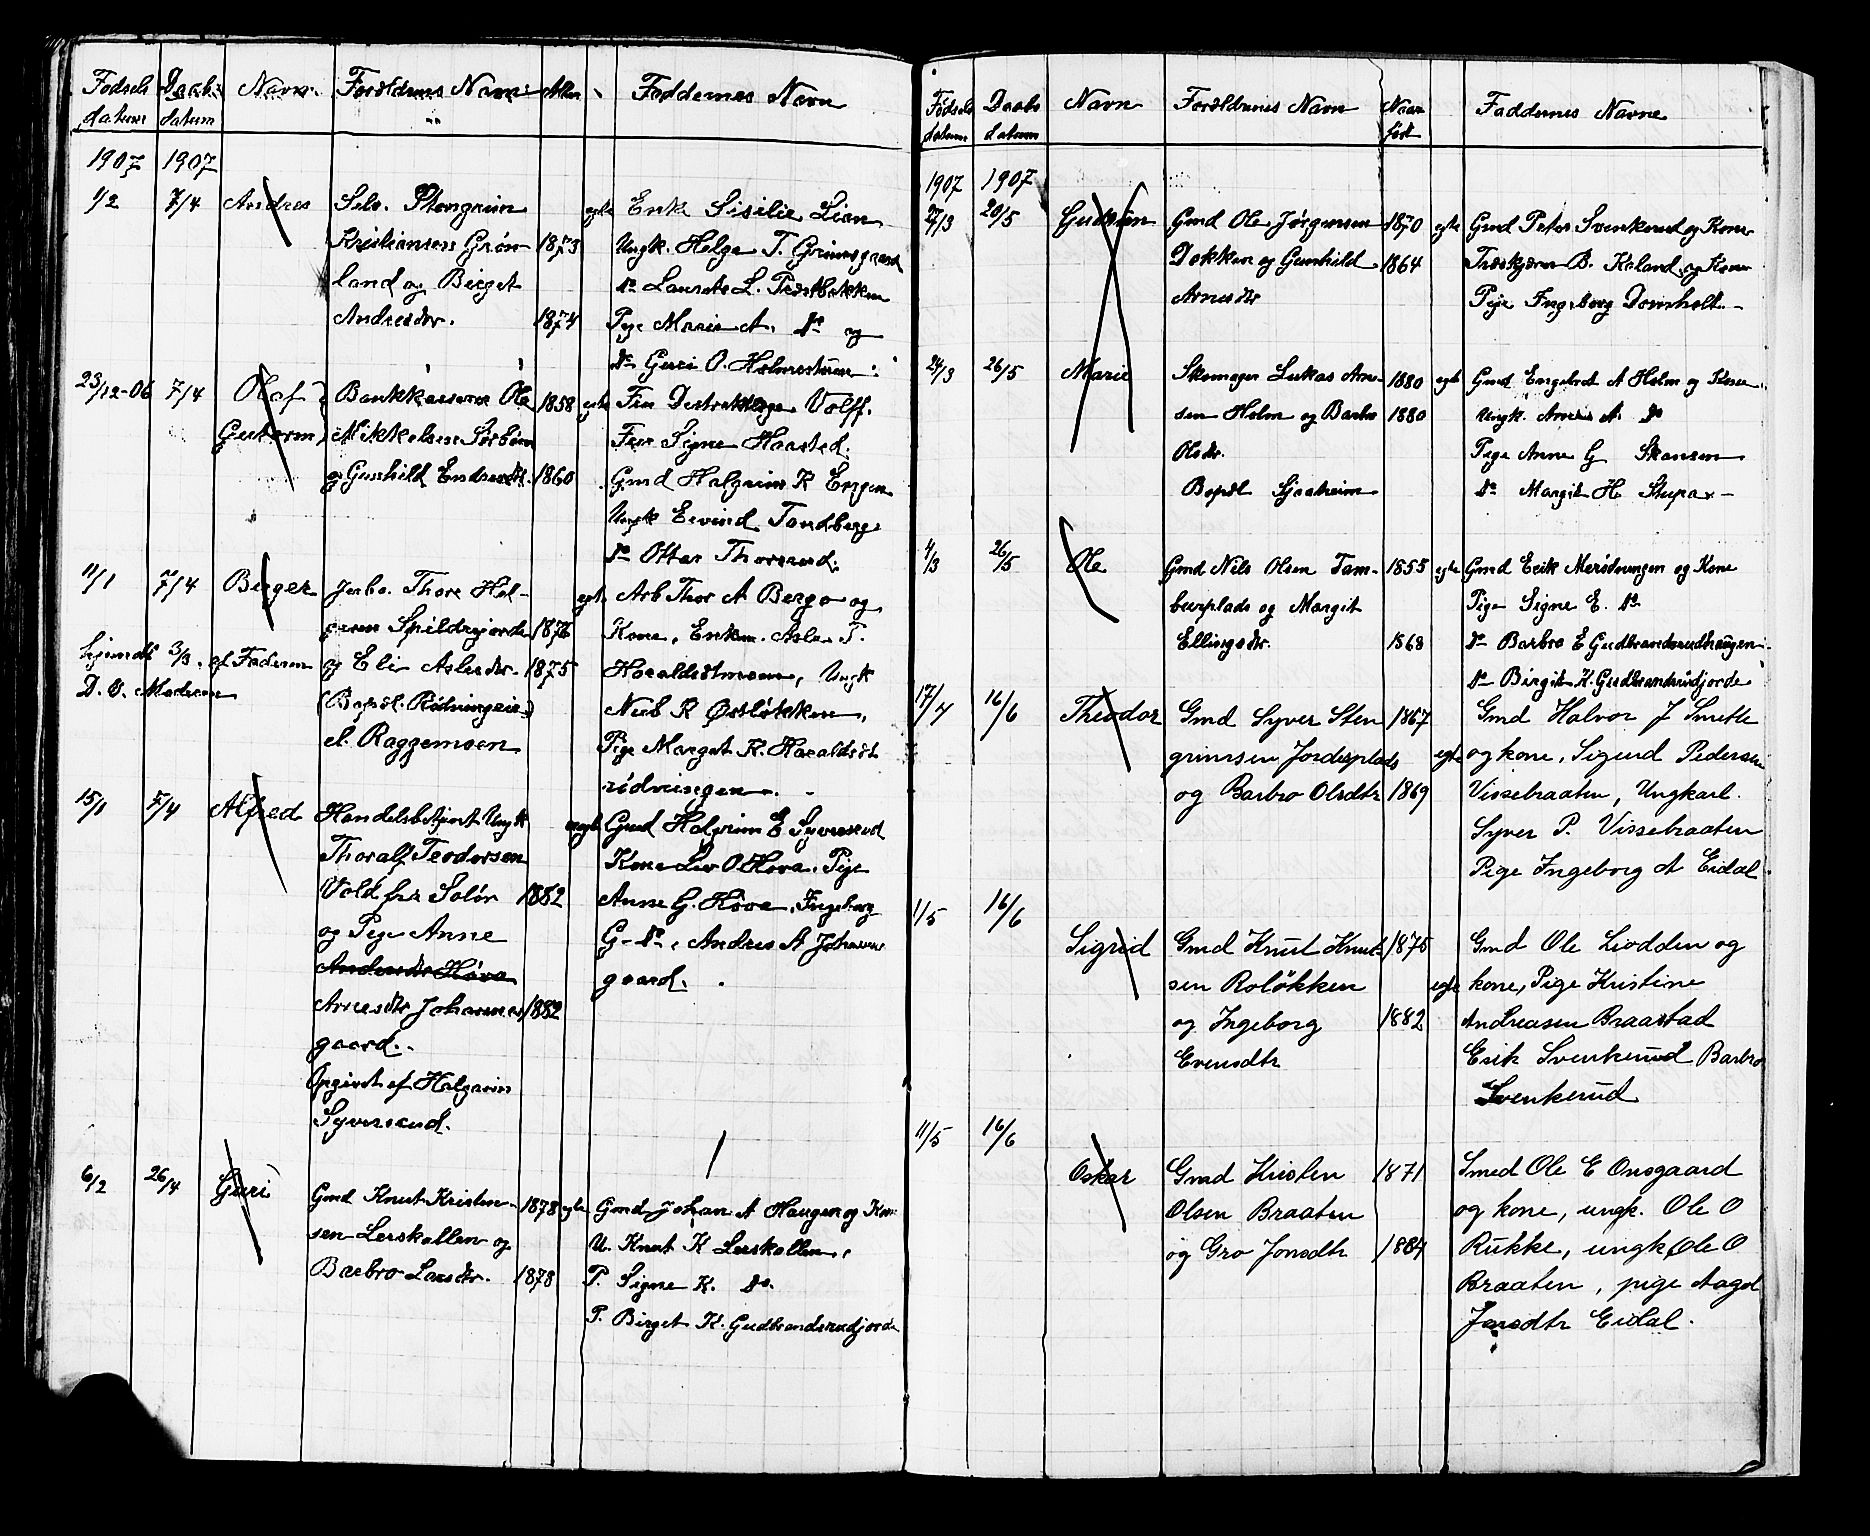 Fødsels datum
Daabs datum
Navn
Forældrenes Navn
Alder
Faddernes Navn
1907 1907
1/2 7/4 Andres
Selv. Stengrim
Kristiansen Grøn-
land og Birget
Andresdtr.
1873
1874
egte
Enke Sisilie Lien
Ungk. Helge T. Grimsgaard
do Laurets L. Træstbakken
Pige Marie A. do og
do Guri O. Holmestuen
23/12-06 7/4 Olaf
Guttorm
Bankkasserer Ole
Mikkelsen Sørbøen
og Gunhild Endresdtr.
1858
1860
egte
Fru Distriktslæge Wolff.
Fru Signe Haasted.
Gmd Halgrim K Engen
Ungk Eivind Tandberg
do Ottar Thorsrud.
11/1 7/4 Birger
Hjemdt 3/3. af Faderen
D. V. Moderen
Jerba. Thore Hal-
Spildrejorde
og Eli Aslesdtr.
(Bopæl. Rødningeie)
el. Raggemoen
1876
1875
egte
Arb Thor A Berga og
Kone, Enkem. Asle T.
Haraldsetmoen, Ungk
Neub R Østløkken,
Pige Margat K. Haraldset
rødningen.
15/1 7/4 Alfred
Handelsbetjent Ungk
Thoralf Teodorsen
Vold fra Solør
og Pige Anne
Andersdtr Hova
Arnesdtr Johannes
gaard.
Opgivet af Halgrim
Syversrud.
1882
1882
uegte
Gmd Halgrim E Syversrud
Kone Liv O Hova. Pige
Anne G. Hova, Ingeborg
G. do, Andres A Johannes
gaard.
6/2 26/4 Guri
Gmd Knut Kristen-
sen Leerskallen og
Barbro Larsdtr.
1878
1878
egte
Gmd Johan A Haugen og Kone
U. Knut K Leerskallen,
P. Signe K. do.
P. Birget K. Gudbrandsrudjorde
Fødsels datum
Daabs datum
Navn
Forældrenes Navn
Naar født
Faddernes Navne
1907 1907
27/3 20/5 Gudrun
Gmd Ole Jørgensen
Dokken og Gunhild
Arnesdtr
1870
1864
egte
Gmd Peter Svenkerud og Kone
Træskjærer B. Kaland og Kone
Pige Ingeborg Domholt
24/3 26/5 Marie
Skomager Lukas Arne-
sen Holm og Barbro
Olsdtr.
Bopæl Gjaaheim
1880
1880
egte
Gmd Engebret A Holm og Kone
Ungk. A. do
Pige Anne G Skansen
do Margit H. Stupar
4/3 26/5 Ole
Gmd Nils Olsen Tam-
burplads og Margit
Ellingsdtr.
1855
1868
egte
Gmd Erik Merødningen og Kone
Pige Signe E. do
do Barbro E Gudbrandsrudhaugen
do Birgit K. Gudbrandsrudjorde
17/4 16/6 Theodor
Gmd Syver Sten
grimsen Jordesplads
og Barbro Olsdtr
1867
1869
egte
Gmd Halvor J Smette
og kone, Sigurd Pedersen
Vissebraaten, Ungkarl.
Syver P. Vissebraaten
Pige Ingeborg A Eidal
1/5 16/6
Sigrid
Gmd Knut Knut-
sen Roløkken
og Ingeborg
Evensdtr
1875
1882
egte
Gmd Ole Liodden og
kone, Pige Kristine
Andreasen Braastad
Erik Svenkerud Barbro
Svenkerud
11/5 16/6
Oskar
Gmd Kristen
Olsen Braaten
og Gro Jonsdtr
1871
1884
Smed Ole E Onsgaard
og kone, ungk. Ole O
Rukke, ungk Ole O
Braaten, pige Aagot
Jonsdtr Eidal.